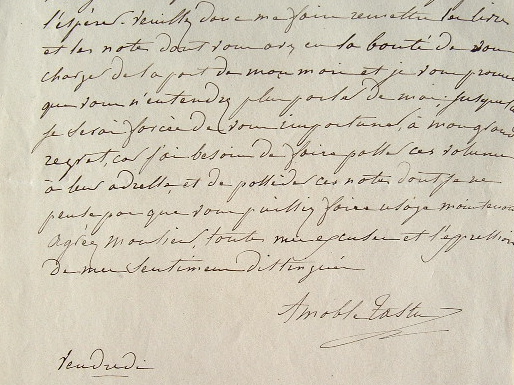 l'espère. Veuillez donc me faire remettre les livres
et les notes dont vous avez eu la bonté de vous
charger de la part de mon et je vous promets
que vous n'entendrez plus parler de moi; jusque là
je serai forcée de vous importuner, à mon grand
regret, car j'ai besoin de faire passer ces volumes
à leur adresse, et de posséder ces notes dont je ne
pense pas que vous puissiez faire usage maintenant
Agréez Monsieur, toutes mes excuses et l'expression
de mes sentimens distingués
Amable Tastu
Vendredi